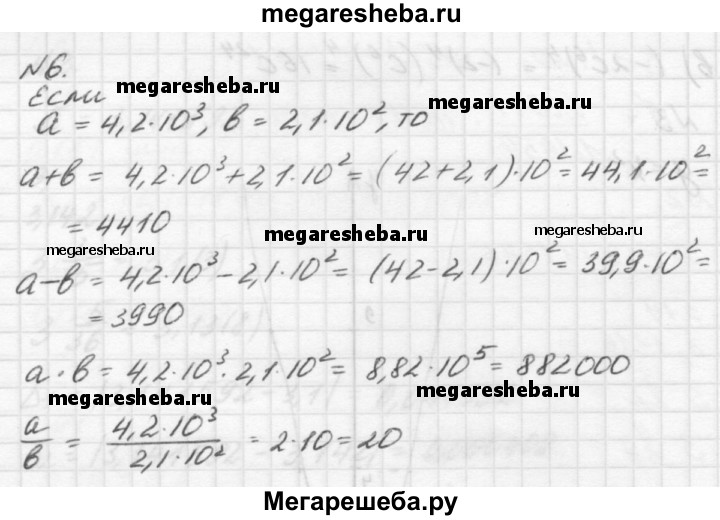 megaresheba.ru
N6.
Если
megaresheba.ru megaresheba.ru
a = 4,2·10³, b = 2,1·10², то
a+b = 4,2·10³+2,1·10² = (42+2,1)·10² = 44,1·10² =
= 4410
megaresheba.ru megaresheba.ru megaresheba.ru
a-b = 4,2·10³-2,1·10² = (42-2,1)·10² = 39,9·10² =
= 3990
a·b = 4,2·10³·2,1·10² = 8,82·10⁵ = 882000
megaresheba.ru megaresheba.ru
a/b = 4,2·10³/2,1·10² = 2·10 = 20
Мегарешеба.ру